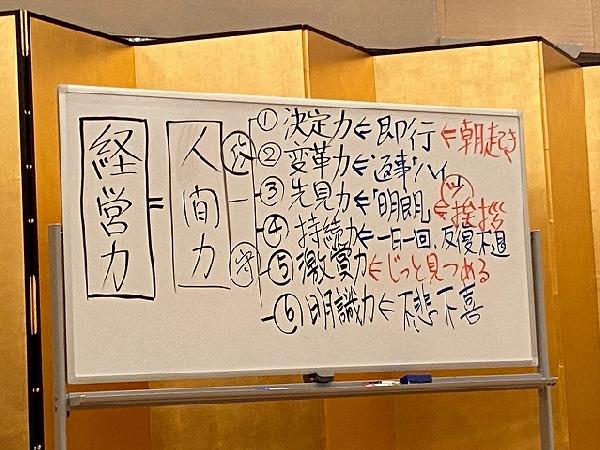 経営力 = 人間力
守
① 決定力⇐即行⇐朝起き
② 変革力⇐"返事"ハイ
③ 先見力⇐「明朗」⇐挨拶
④ 持続力⇐一日一回、反復不退
⑤ 激賞力⇐じっと見つめる
⑥ 明識力⇐不悲不喜